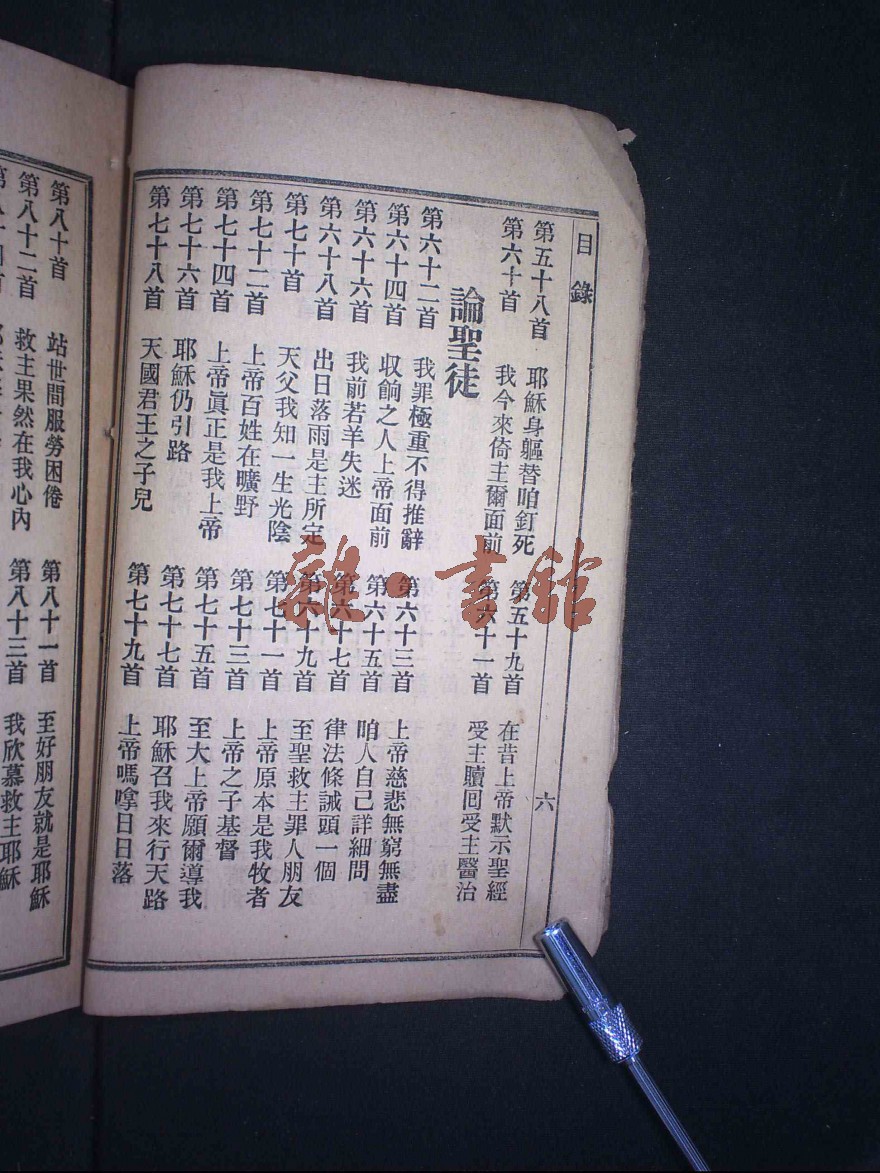 目錄
六
第五十八首 耶穌身軀替咱釘死 第五十九首 在昔上帝默示聖經
第六十首 我今來倚主爾面前 第六十一首 受主贖回受主醫治
論聖徒
第六十二首 我罪極重不得推辭 第六十三首 上帝慈悲無窮無盡
第六十四首 收餉之人上帝面前 第六十五首 咱人自己詳細問
第六十六首 我前若羊失迷 第六十七首 律法條誡頭一個
第六十八首 出日落雨是主所定 第六十九首 至聖救主罪人朋友
第七十首 天父我知一生光陰 第七十一首 上帝原本是我牧者
第七十二首 上帝百姓在曠野 第七十三首 上帝之子基督
第七十四首 上帝眞正是我上帝 第七十五首 至大上帝願爾導我
第七十六首 耶穌仍引路 第七十七首 耶穌召我來行天路
第七十八首 天國君王之子兒 第七十九首 上帝嗎嗱日日落
第八十首 站世間服勞困倦 第八十一首 至好朋友就是耶穌
第八十二首 救主果然在我心內 第八十三首 我欣慕救主耶穌
雜·書館